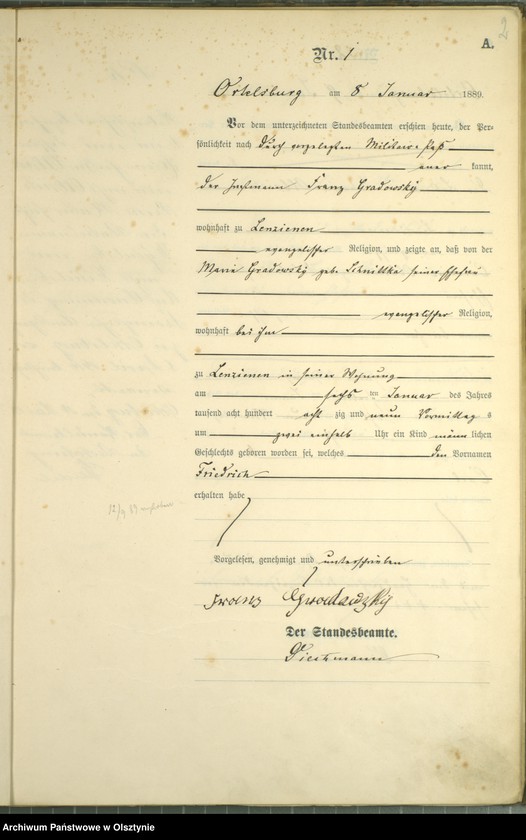 2
A.
Nr. 1
Ortelsburg am 8 Januar 1889.
Vor dem unterzeichneten Standesbeamten erschien heute, der Per-
sönlichkeit nach durch vorgelegten Militair-Paß
aner kannt,
der Instmann Franz Gradowsky
wohnhaft zu Lenzienen
evangelischer Religion, und zeigte an, daß von der
Marie Gradowsky geb. Schnittka seiner Ehefrau
evangelischer Religion,
wohnhaft bei ihm
zu Lenzienen in seiner Wohnung
am sechs ten Januar des Jahres
tausend acht hundert acht zig und neun Vormittag s
um zwei einhalb Uhr ein Kind männ lichen
Geschlechts geboren worden sei, welches den Vornamen
Friedrich
erhalten habe
Vorgelesen, genehmigt und unterschrieben
Franz Gradowsky
Der Standesbeamte.
Archiwum Państwowe w Olsztynie